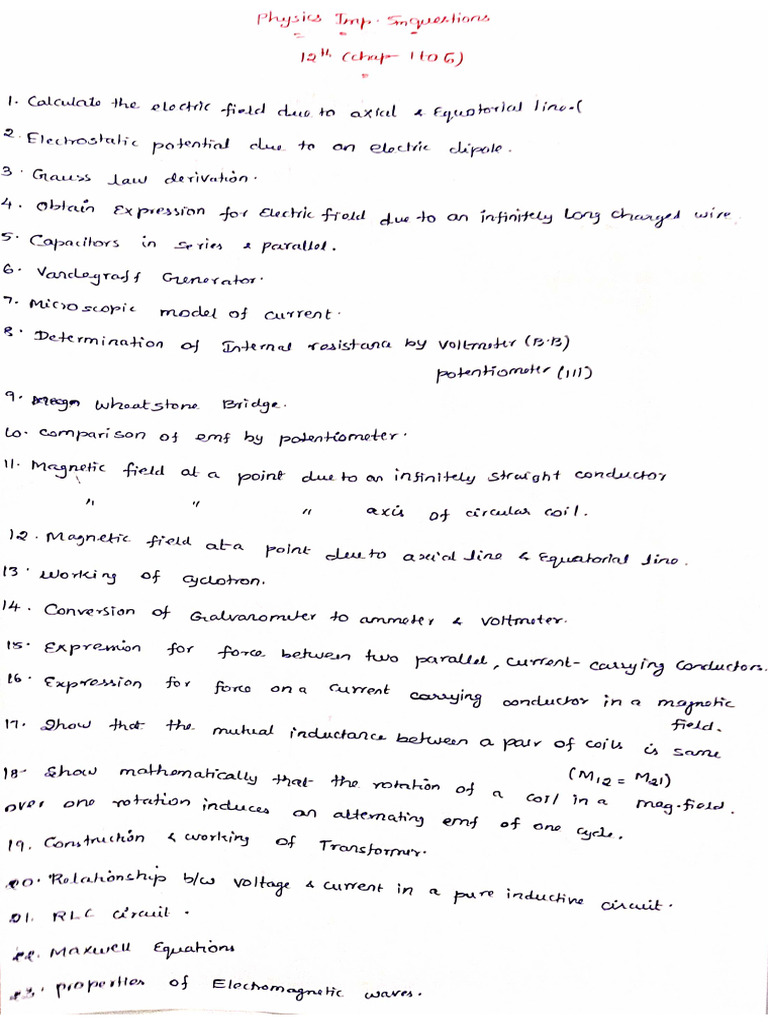 Physics Imp. 5m questions
12th (chap - 1 to 5)
1. Calculate the electric field due to axial & Equatorial line.(
2. Electrostatic potential due to an electric dipole.
3. Gauss law derivation.
4. Obtain Expression for Electric field due to an infinitely long charged wire.
5. Capacitors in series & parallel.
6. Vandegraff Generator.
7. Microscopic model of current.
8. Determination of Internal resistance by voltmeter (B.B)
potentiometer (111)
9. Wheatstone Bridge.
10. comparison of emf by potentiometer.
11. Magnetic field at a point due to an infinitely straight conductor
" " " axis of circular coil.
12. Magnetic field at a point due to axial line & Equatorial line.
13. Working of cyclotron.
14. Conversion of Galvanometer to ammeter & voltmeter.
15. Expression for force between two parallel, current-carrying conductors.
16. Expression for force on a current carrying conductor in a magnetic
field.
17. Show that the mutual inductance between a pair of coils is same
(M12 = M21)
18. Show mathematically that the rotation of a coil in a mag.field.
over one rotation induces an alternating emf of one cycle.
19. Construction & working of Transformer.
20. Relationship b/w voltage & current in a pure inductive circuit.
21. RLC circuit.
22. Maxwell Equations
23. properties of Electromagnetic waves.